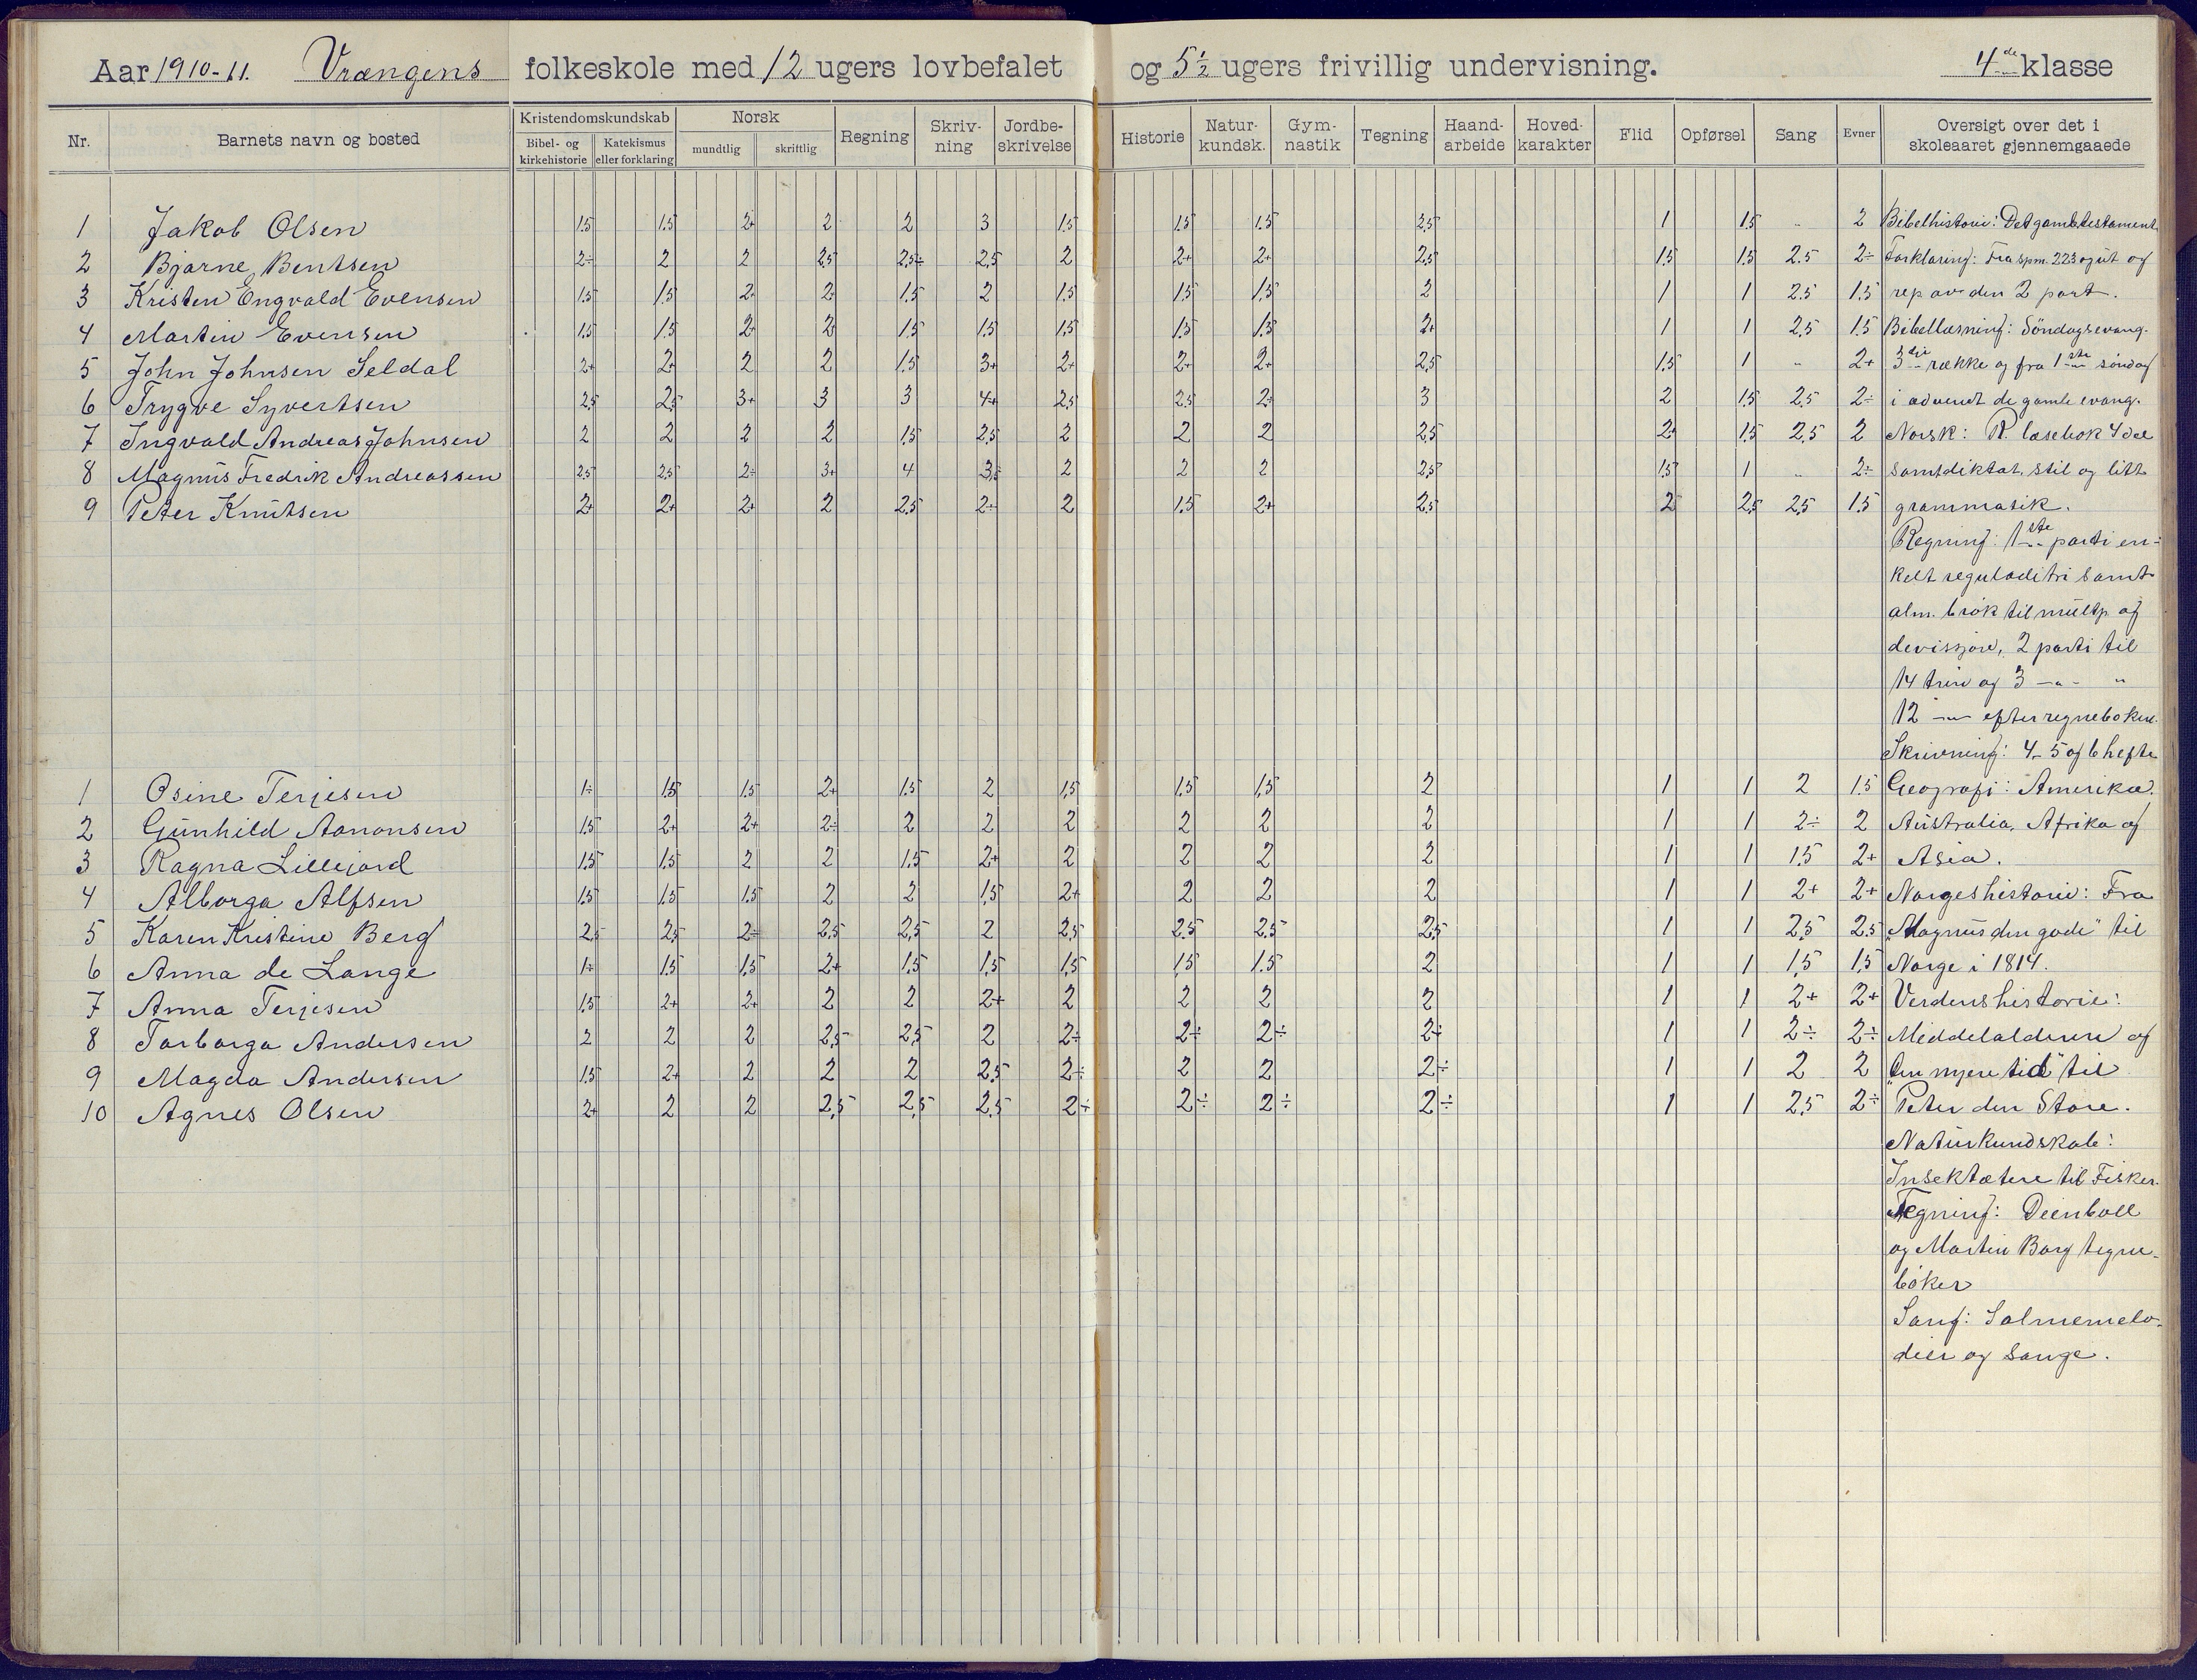 Aar 1910-11. Vrængens folkeskole med 12 ugers lovbefalet og 5 1/2 ugers frivillig undervisning. 4de klasse
Nr. Barnets navn og bosted Kristendomskundskab Bibel- og kirkehistorie Katekismus eller forklaring Norsk mundtlig skriftlig Regning Skriv-ning Jordbe-skrivelse Historie Natur-kundsk. Gym-nastik Tegning Haand-arbeide Hoved-karakter Flid Opførsel Sang Evner Oversigt over det i skoleaaret gjennemgaaede
1 Jakob Olsen 1.5 1.5 2+ 2 2 3 1.5 1.5 1.5 2.5 1 1.5 .. 2 Bibelhistorie: Det gamle testament.
2 Bjarne Bentsen 2÷ 2 2 2.5 2.5÷ 2.5 2 2+ 2+ 2.5 1.5 1.5 2.5 2÷ Forklaring: Fra spm. 223 og ut og
3 Kristen Engvald Evensen 1.5 1.5 2+ 2+ 1.5 2 1.5 1.5 1.5 2 1 1 2.5 1.5 rep av den 2 part.
4 Martin Evensen 1.5 1.5 2+ 2+ 1.5 1.5 1.5 1.5 1.5 2+ 1 1 2.5 1.5 Bibellæsning: Söndagsevang.
5 John Johnsen Seldal 2+ 2+ 2 2 1.5 3+ 2+ 2+ 2+ 2.5 1.5 1 .. 2+ 3die række og fra 1ste söndag
6 Trygve Syvertsen 2.5 2.5 3+ 3 3 4+ 2.5 2.5 2÷ 3 2 1.5 2.5 2÷ i advent de gamle evang.
7 Ingvald Andreas Johnsen 2 2 2 2 1.5 2.5 2 2 2 2.5 2+ 1.5 2.5 2 Norsk: R. læsebok 4 del
8 Magnus Fredrik Andreassen 2.5 2.5 2÷ 3+ 4 3÷ 2 2 2 2.5 1.5 1 .. 2÷ samt diktat, stil og litt
9 Peter Knutsen 2+ 2+ 2+ 2 2.5 2÷ 2 1.5 2+ 2.5 2 2.5 2.5 1.5 grammatik.
Regning: 1ste parti en-
kelt reguladitri samt
alm. brök til multp. og
devisjon, 2 parti til
14 trin og 3 -"- "
12 -"- efter regneboken.
Skrivning: 4-5 og 6 hefte
1 Osine Terjesen 1÷ 1.5 1.5 2+ 1.5 2 1.5 1.5 1.5 2 1 1 2 1.5 Geografi: Amerika.
2 Gunhild Aanonsen 1.5 2+ 2+ 2÷ 2 2 2 2 2 2 1 1 2÷ 2 Australia, Afrika og
3 Ragna Lillejord 1.5 1.5 2 2 1.5 2+ 2 2 2 2 1 1 1.5 2+ Asia.
4 Alborga Alfsen 1.5 1.5 1.5 2 2 1.5 2+ 2 2 2 1 1 2+ 2+ Norgeshistorie: Fra
5 Karen Kristine Berg 2.5 2.5 2÷ 2.5 2.5 2 2.5 2.5 2.5 2.5 1 1 2.5 2.5 "Magnus den gode" til
6 Anna de Lange 1÷ 1.5 1.5 2+ 1.5 1.5 1.5 1.5 1.5 2 1 1 1.5 1.5 Norge i 1814.
7 Anna Terjesen 1.5 2+ 2+ 2 2 2+ 2 2 2 2 1 1 2+ 2+ Verdenshistorie:
8 Torborga Andersen 2 2 2 2.5 2.5 2 2÷ 2÷ 2÷ 2÷ 1 1 2÷ 2÷ Middelalderen og
9 Magda Andersen 1.5 2+ 2 2 2 2.5 2÷ 2 2 2÷ 1 1 2 2 "den nyere tid" til
10 Agnes Olsen 2+ 2 2 2.5 2.5 2.5 2÷ 2÷ 2÷ 2÷ 1 1 2.5 2÷ Peter den Store.
Naturkundskab:
Insektætere til Fisker.
Tegning: Dienboll
og Martin Borg tegne-
böker
Sang: Salmemelo-
dier og sange.